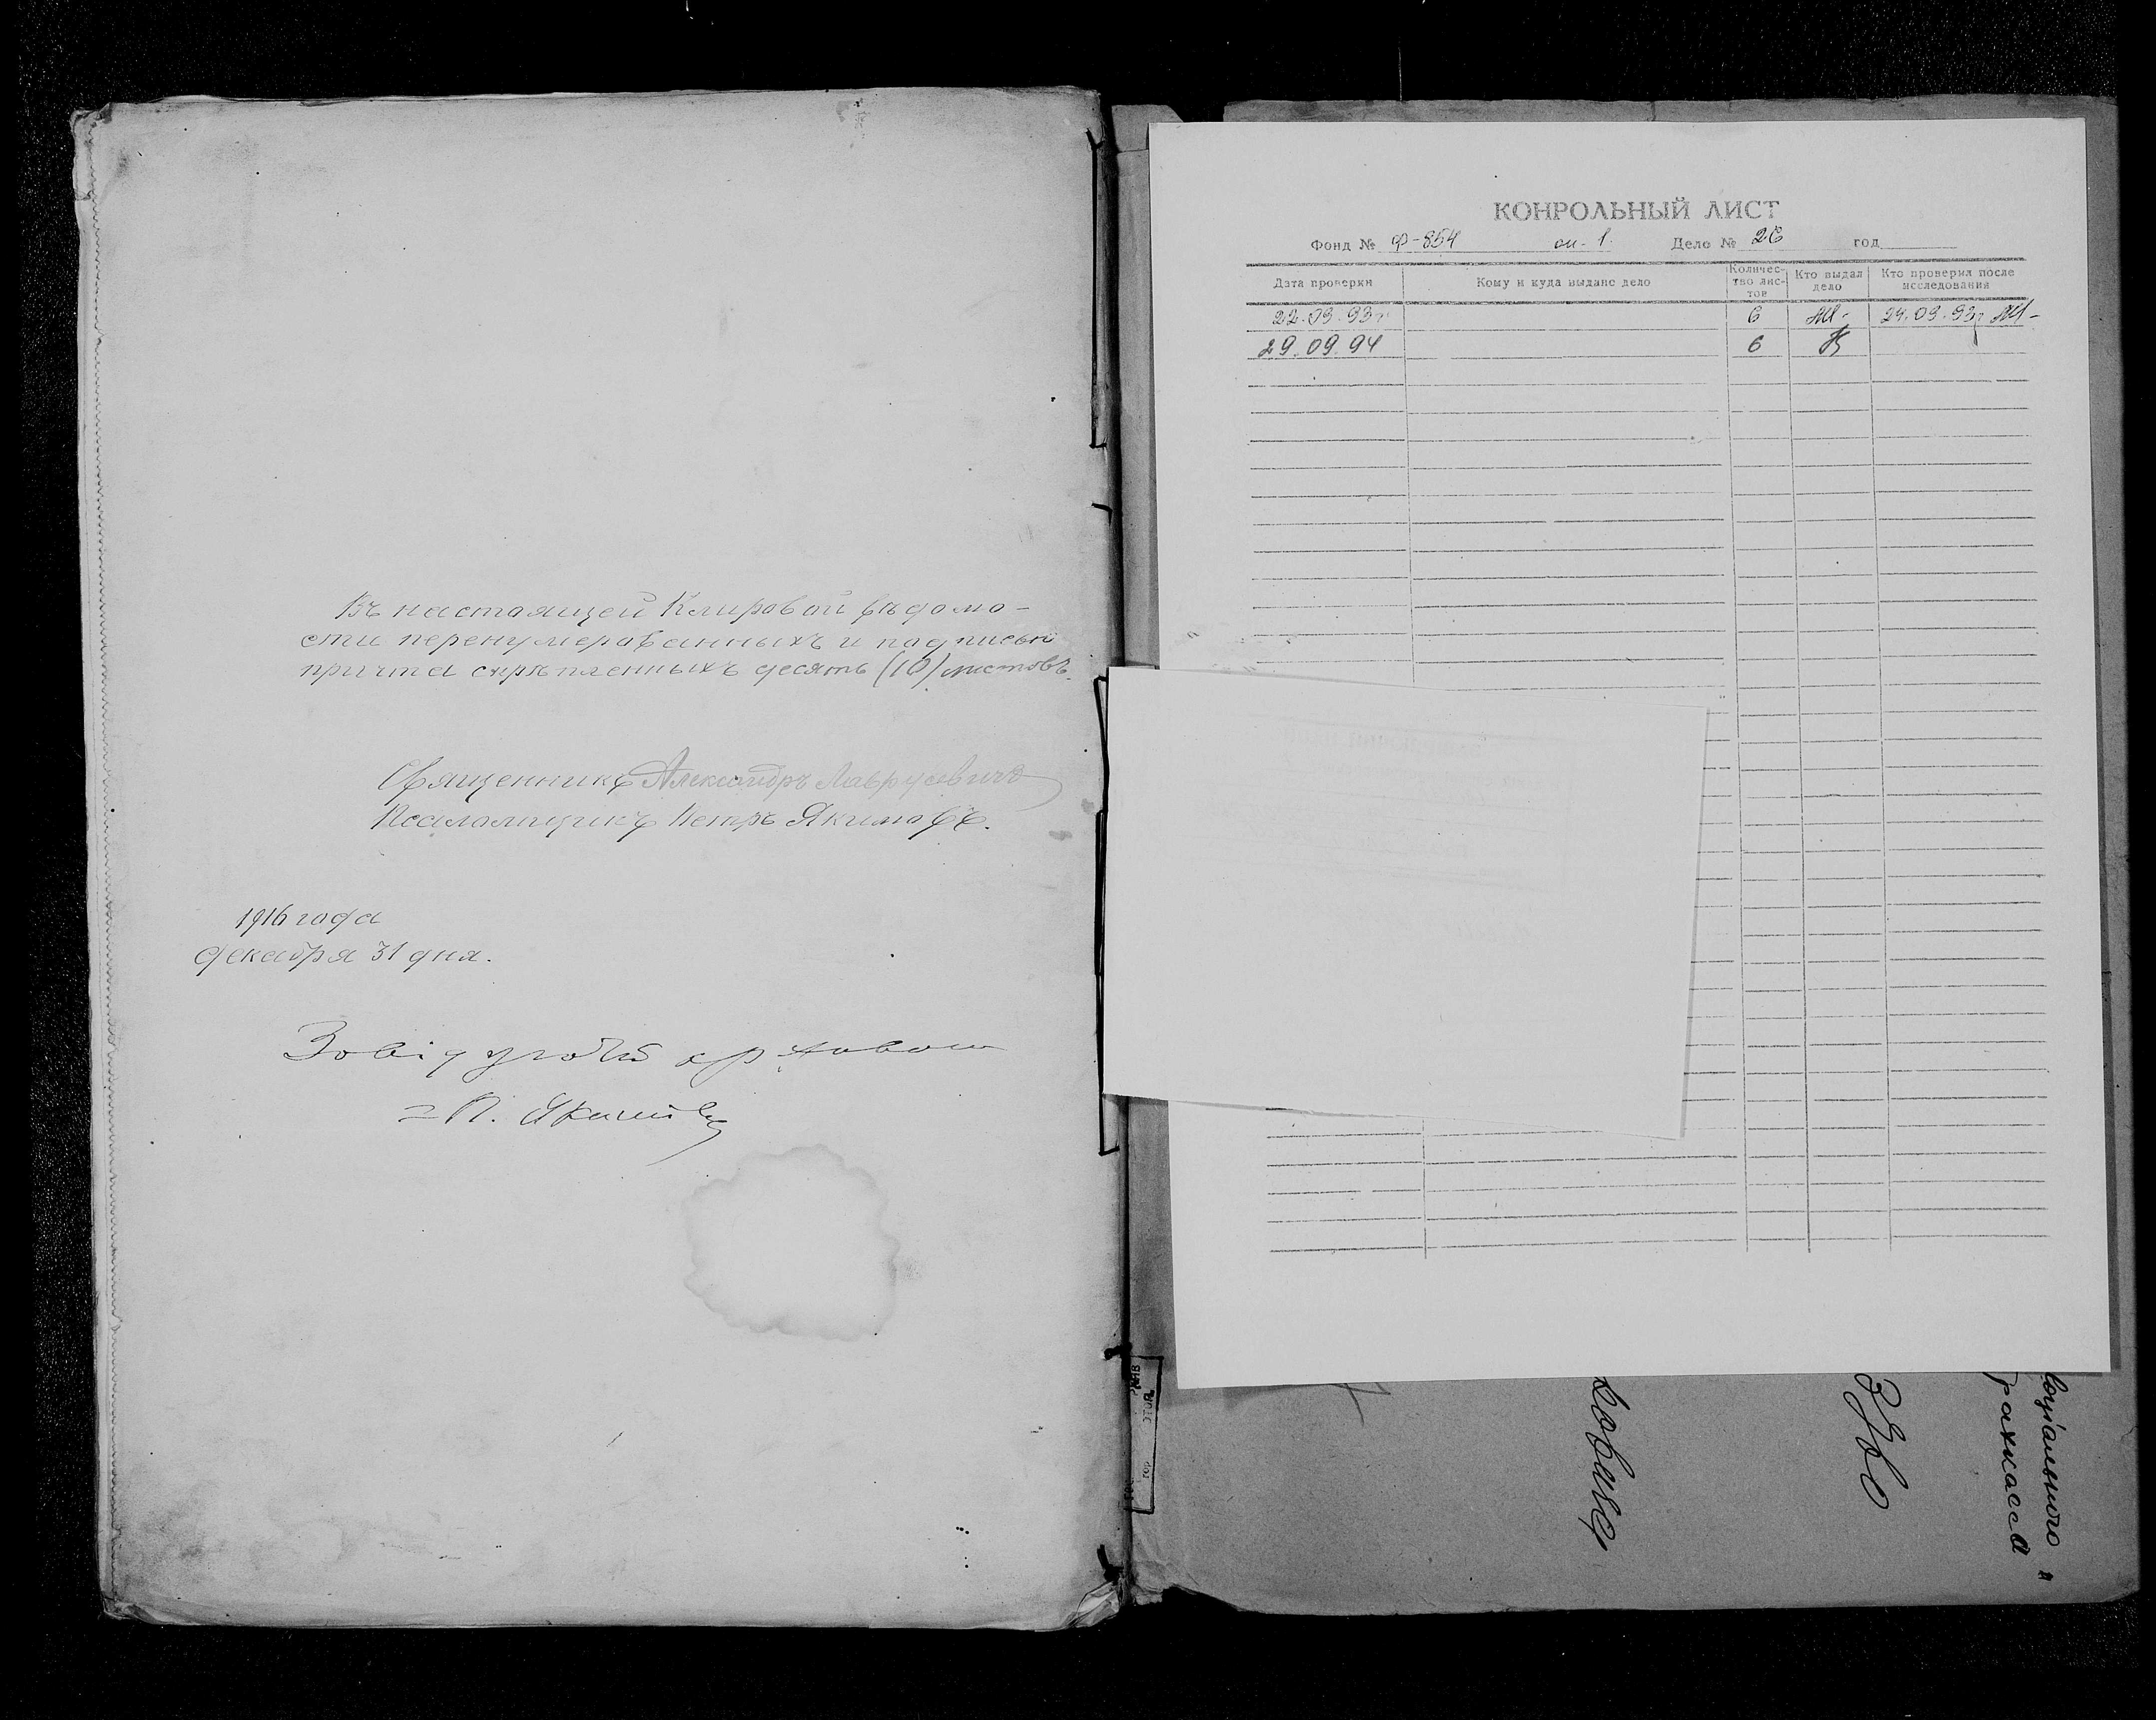 Въ настоящей Клировой вѣдомо-
сти перенумерованныхъ и подписью
причта скрѣпленныхъ десять (10) листовъ.
Священникъ Александръ Лаврусевичъ
Псаломщикъ Петръ Якимовъ.
1916 года
декабря 31 дня.
Завідуючий архивом
П. Якимів
КОНРОЛЬНЫЙ ЛИСТ
Фонд № Ф-854 оп. 1. Дело № 26 год
Дата проверки Кому и куда выдано дело Количес-тво лис-тов Кто выдал дело Кто проверил после исследования
22.03.93г 6 24.03.93г
29.09.94 6